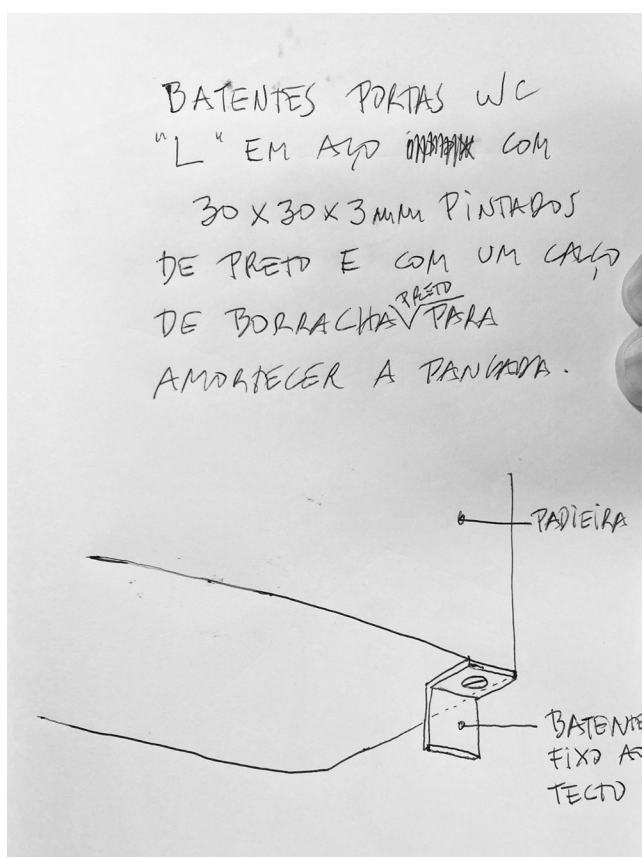 BATENTES PORTAS WC
"L" EM AÇO COM
30 X 30 X 3 mm PINTADOS
DE PRETO E COM UM CALÇO
DE BORRACHA PRETO PARA
AMORTECER A PANCADA.
PADIEIRA
BATENTE
FIXO AO
TECTO